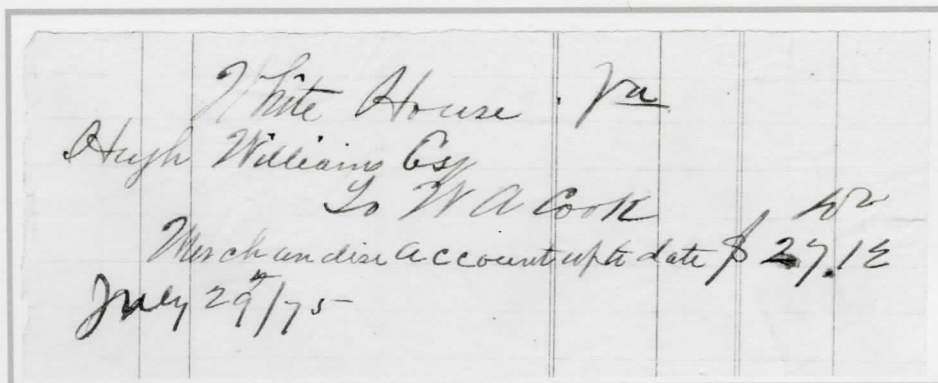 White House Va
Hugh Williams Esq
To W A Cook
Merchandise account up to date $ 27.12
July 29th/75